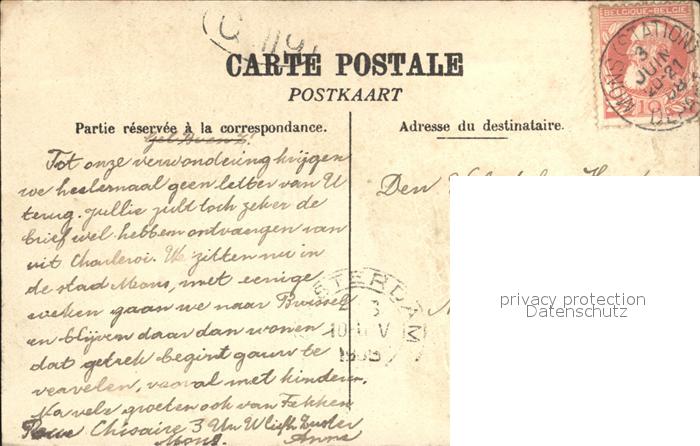 CARTE POSTALE
POSTKAART
Partie réservée à la correspondance.
Adresse du destinataire.
BELGIQUE-BELGIË
MONS (STATION)
3
JUIN
20-21
10
Tot onze verwondering krijgen
we heelemaal geen letter van U
terug. Jullie zult toch zeker de
brief wel hebben ontvangen van
uit Charleroi. We zitten nu in
de stad Mons, met eenige
weken gaan we naar Brussel
en blijven daar dan wonen
dat getrek begint gauw te
vervelen, vooral met kinderen.
Na vele groeten ook van Fekken
Chisaire 3 Uw U liefh. Zuster
Mons. Anna
Den
STERDAM
10-11 V
privacy protection
Datenschutz